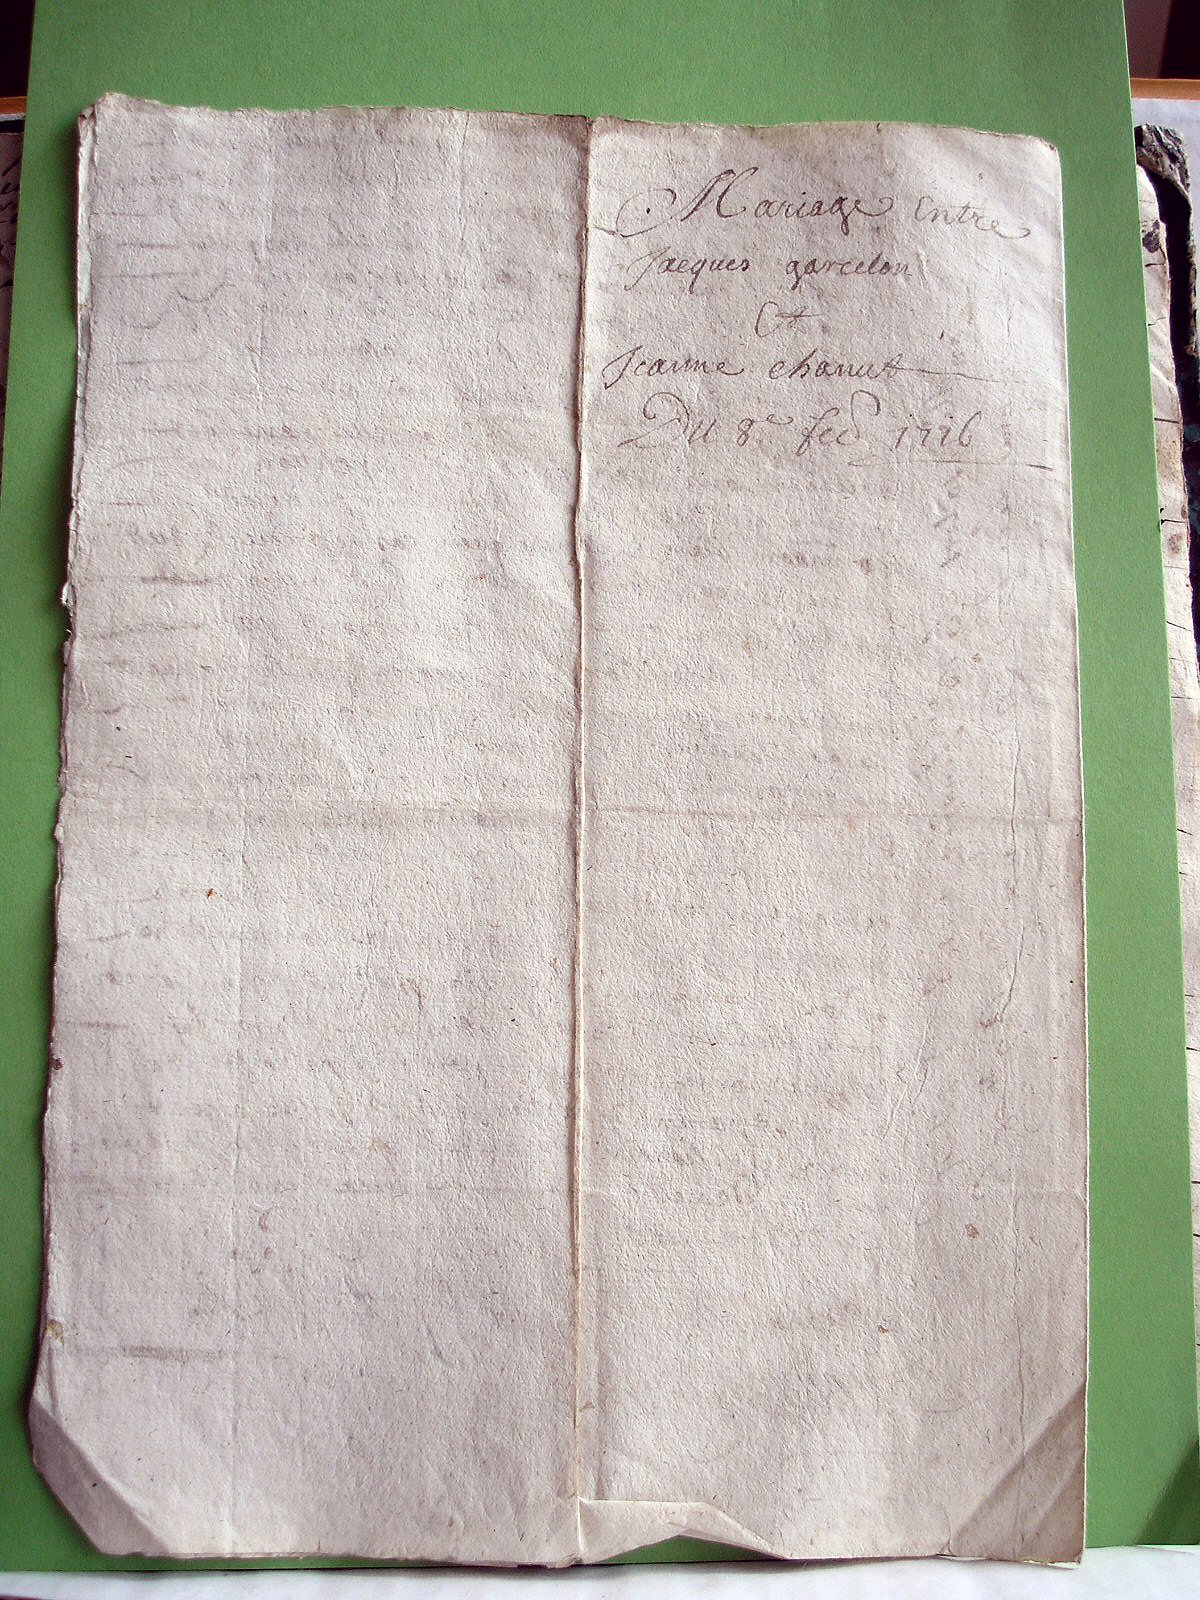 Mariage Entre
Jacques garcelon
Et
Jeanne chanut
Du 8e feb 1716